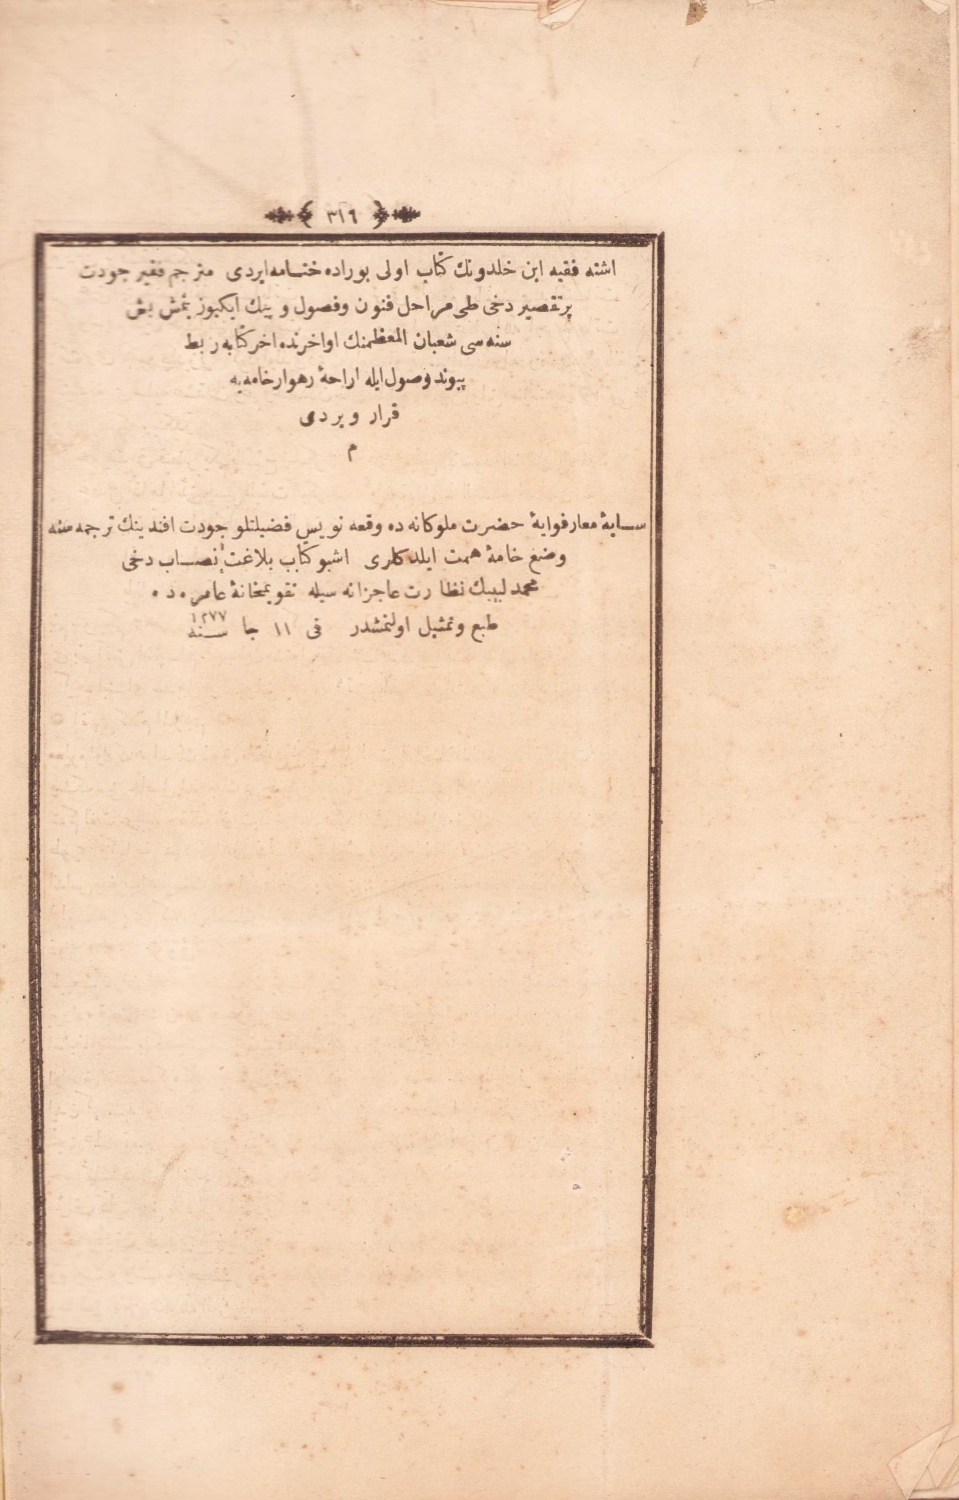 ﴿ ٣١٦ ﴾
اشته فقیه ابن خلدونك كتاب اولی بوراده ختامه ایردی مترجم فقیر جودت
پرتقصیر دخی طی مراحل فنون وفصول و بیك ایكیوز یتمش بش
سنه سی شعبان المعظمنك اواخرنده اخر كتابه ربط
پیوند وصول ایله اراحۀ رهوار خامه یه
قرار ویردی
م
سایۀ معارفوایۀ حضرت ملوكانه ده وقعه نویس فضیلتلو جودت افندینك ترجمه سنه
وضع خامۀ همت ایلدكلری اشبو كتاب بلاغت نصاب دخی
محمد لبیبك نظارت عاجزانه سیله تقویمخانۀ عامره ده
طبع وتمثیل اولنمشدر فی ١١ جا سنه ١٢٧٧